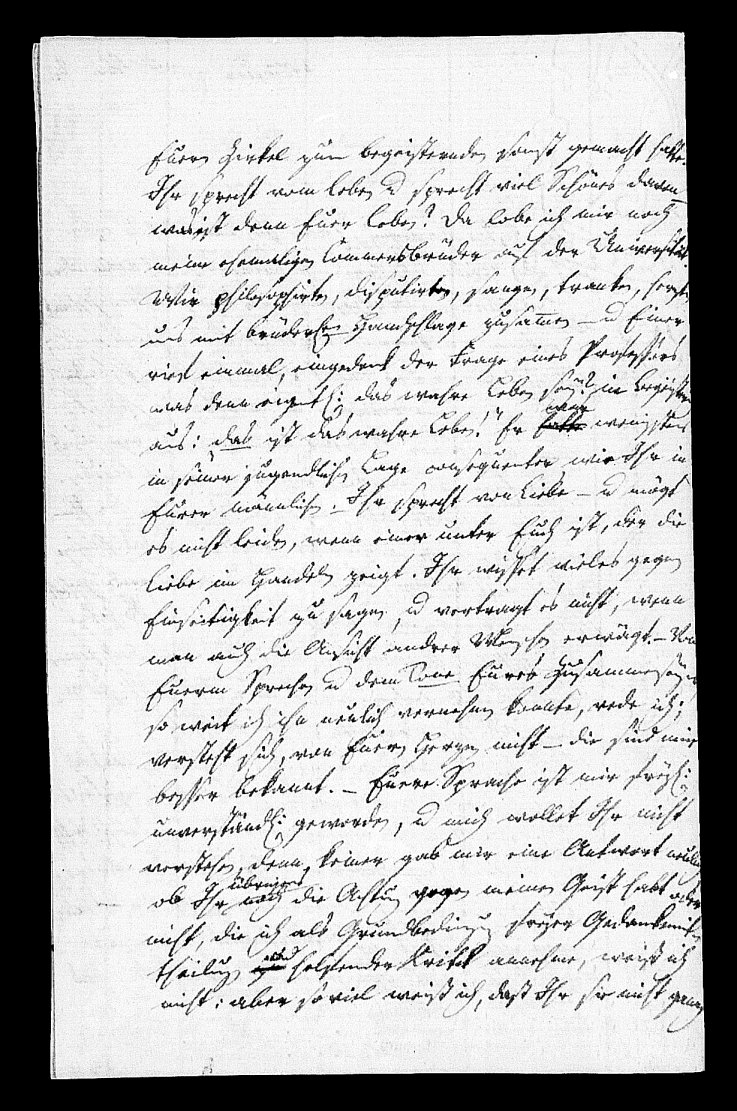 Euern Zirkel zum begeisternden sonst gemacht hatte.
Ihr sprecht vom Leben u sprecht viel Schönes davon –
was ist denn Euer Leben? Da lobe ich mir noch
meine ehemaligen Commersbrüder auf der Universität.
Wir philosophirten, disputirten, sangen, tranken,
uns mit brüderlichen Handschlage zusamen – u Einer
rief einmal, eingedenk der Frage eines Professors
was denn eigentl: das wahre Leben sey? in
aus: das ist das wahre Leben!" Er war wenigstens
in seiner jugendlichen Lage consequenter wie Ihr in
Eurer männlichen. Ihr sprecht von Liebe – u mögt
es nicht leiden, wenn einer unter Euch ist, der die
Liebe im Handeln zeigt. Ihr wisset vieles gegen
Einseitigkeit zu sagen, u vertragt es nicht, wenn
man auch die Ansicht andrer Menschen erwägt. – Von
Euerm Sprechen u dem Tone Eures Zusammenseyns
so weit ich ihn neulich vernehmen konnte, rede ich,
versteht sich, von Euern Herzen nicht – die sind mir
besser bekannt. – Euere Sprache ist mir
unverständl: geworden, u mich wollet Ihr nicht
verstehen, denn keiner gab mir eine Antwort neulich
ob Ihr übrigens die Achtung gegen meinen Geist habt oder
nicht, die ich als Grundbedingung Gedankenmit-
theilung und helfender Kritik annehme, weiß ich
nicht: aber so viel weiß ich, daß Ihr sie nicht